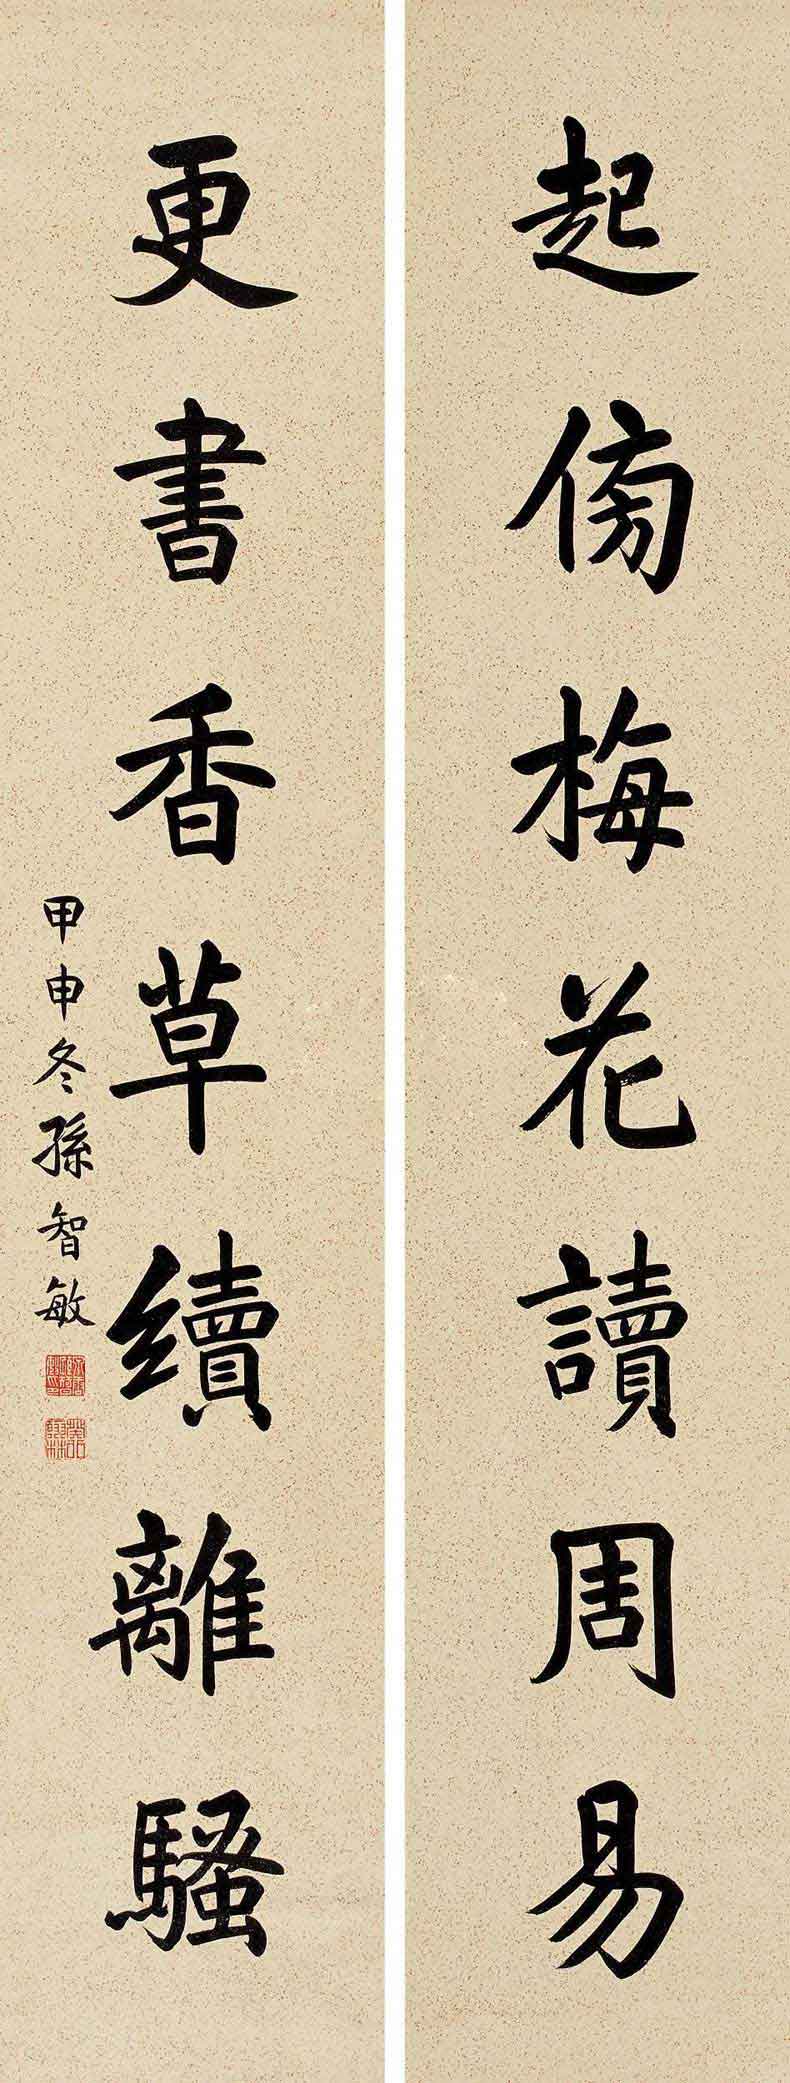 起傍梅花讀周易
更書香草續離騷
甲申冬孫智敏